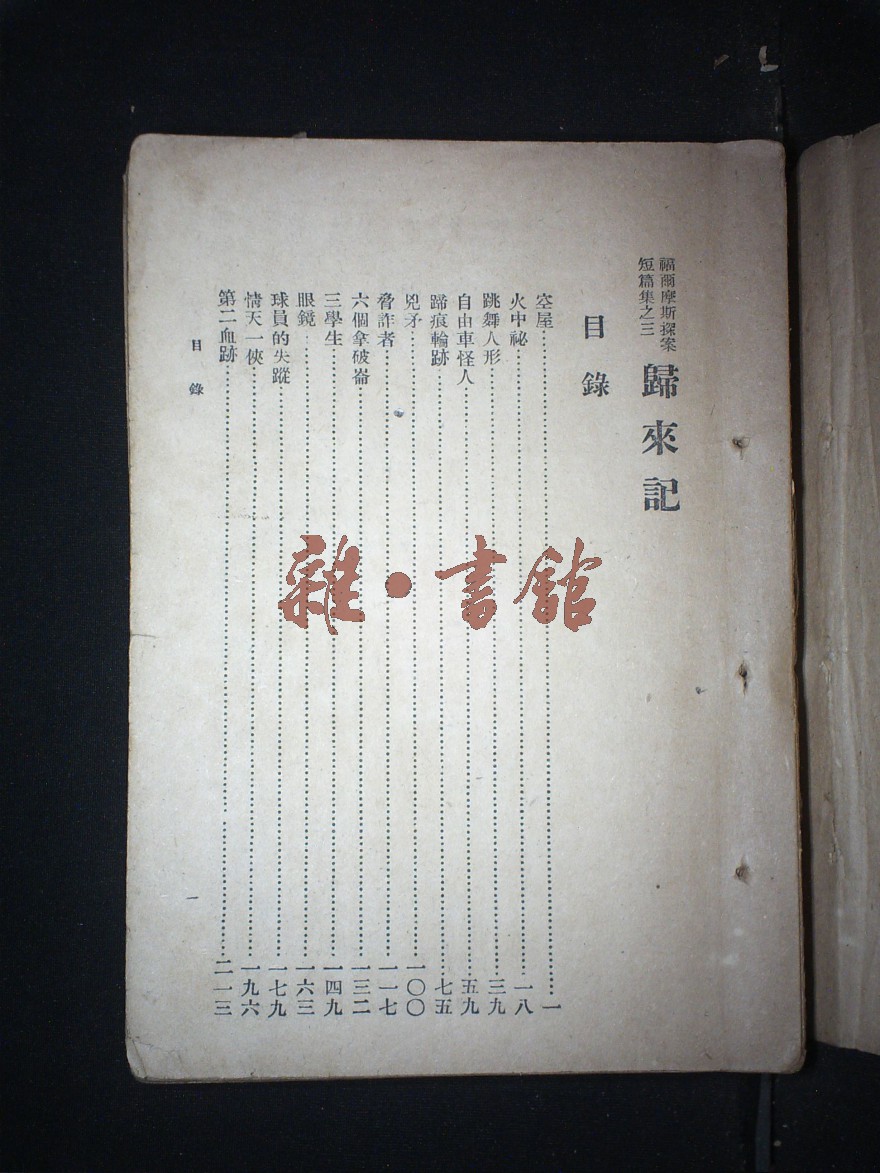 福爾摩斯探案
短篇集之三
歸來記
目錄
空屋……一
火中祕……一八
跳舞人形……三九
自由車怪人……五九
蹄痕輪跡……七五
兇矛……一〇〇
脅詐者……一一七
六個拿破崙……一三二
三學生……一四九
眼鏡……一六三
球員的失蹤……一七九
情天一俠……一九六
第二血跡……二一三
目錄
一
雜·書館